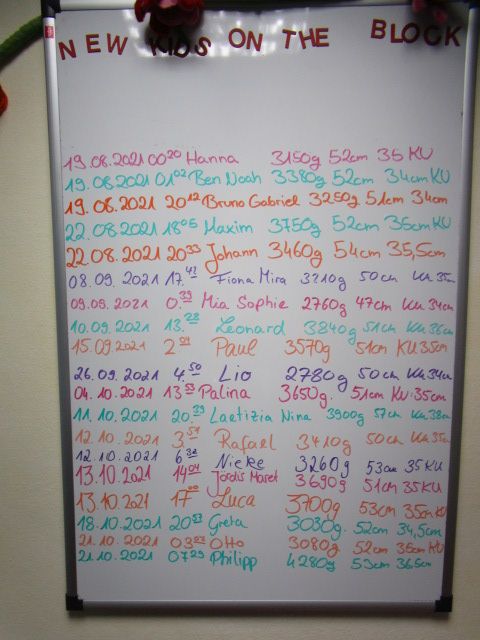 NEW KIDS ON THE BLOCK
19.08.2021 00²⁰ Hanna 3150g 52cm 35 KU
19.08.2021 01⁰² Ben Noah 3380g 52cm 34cm KU
19.08.2021 20¹² Bruno Gabriel 3250g 51cm 34cm
22.08.2021 18⁰⁵ Maxim 3750g 52cm 35cm KU
22.08.2021 20³³ Johann 3460g 54cm 35,5cm
08.09.2021 17.⁴² Fiona Mira 3210g 50cm KU 35cm
09.09.2021 0.³⁹ Mia Sophie 2760g 47cm KU 34cm
10.09.2021 13.²⁸ Leonard 3840g 51cm KU 36cm
15.09.2021 2⁰⁴ Paul 3570g 51cm KU 35cm
26.09.2021 4.⁵⁰ Lio 2780g 50cm KU 34cm
04.10.2021 13⁵³ Palina 3650g. 51cm KU 35cm
11.10.2021 20.³⁹ Laetizia Nina 3900g 57cm KU 38cm
12.10.2021 3.⁵⁷ Rafael 3410g 50cm KU 35cm
12.10.2021 6³² Nieke 3260g 53cm 35 KU
13.10.2021 14⁰⁴ Jordis Maret 3690g 51cm 35 KU
13.10.2021 17⁰⁰ Luca 3700g 53cm 35cm KU
18.10.2021 20⁵³ Greta 3030g. 52cm 34,5cm
21.10.2021 03⁰³ Otto 3080g 52cm 35cm KU
21.10.2021 07²⁹ Philipp 4280g 53cm 36,5cm